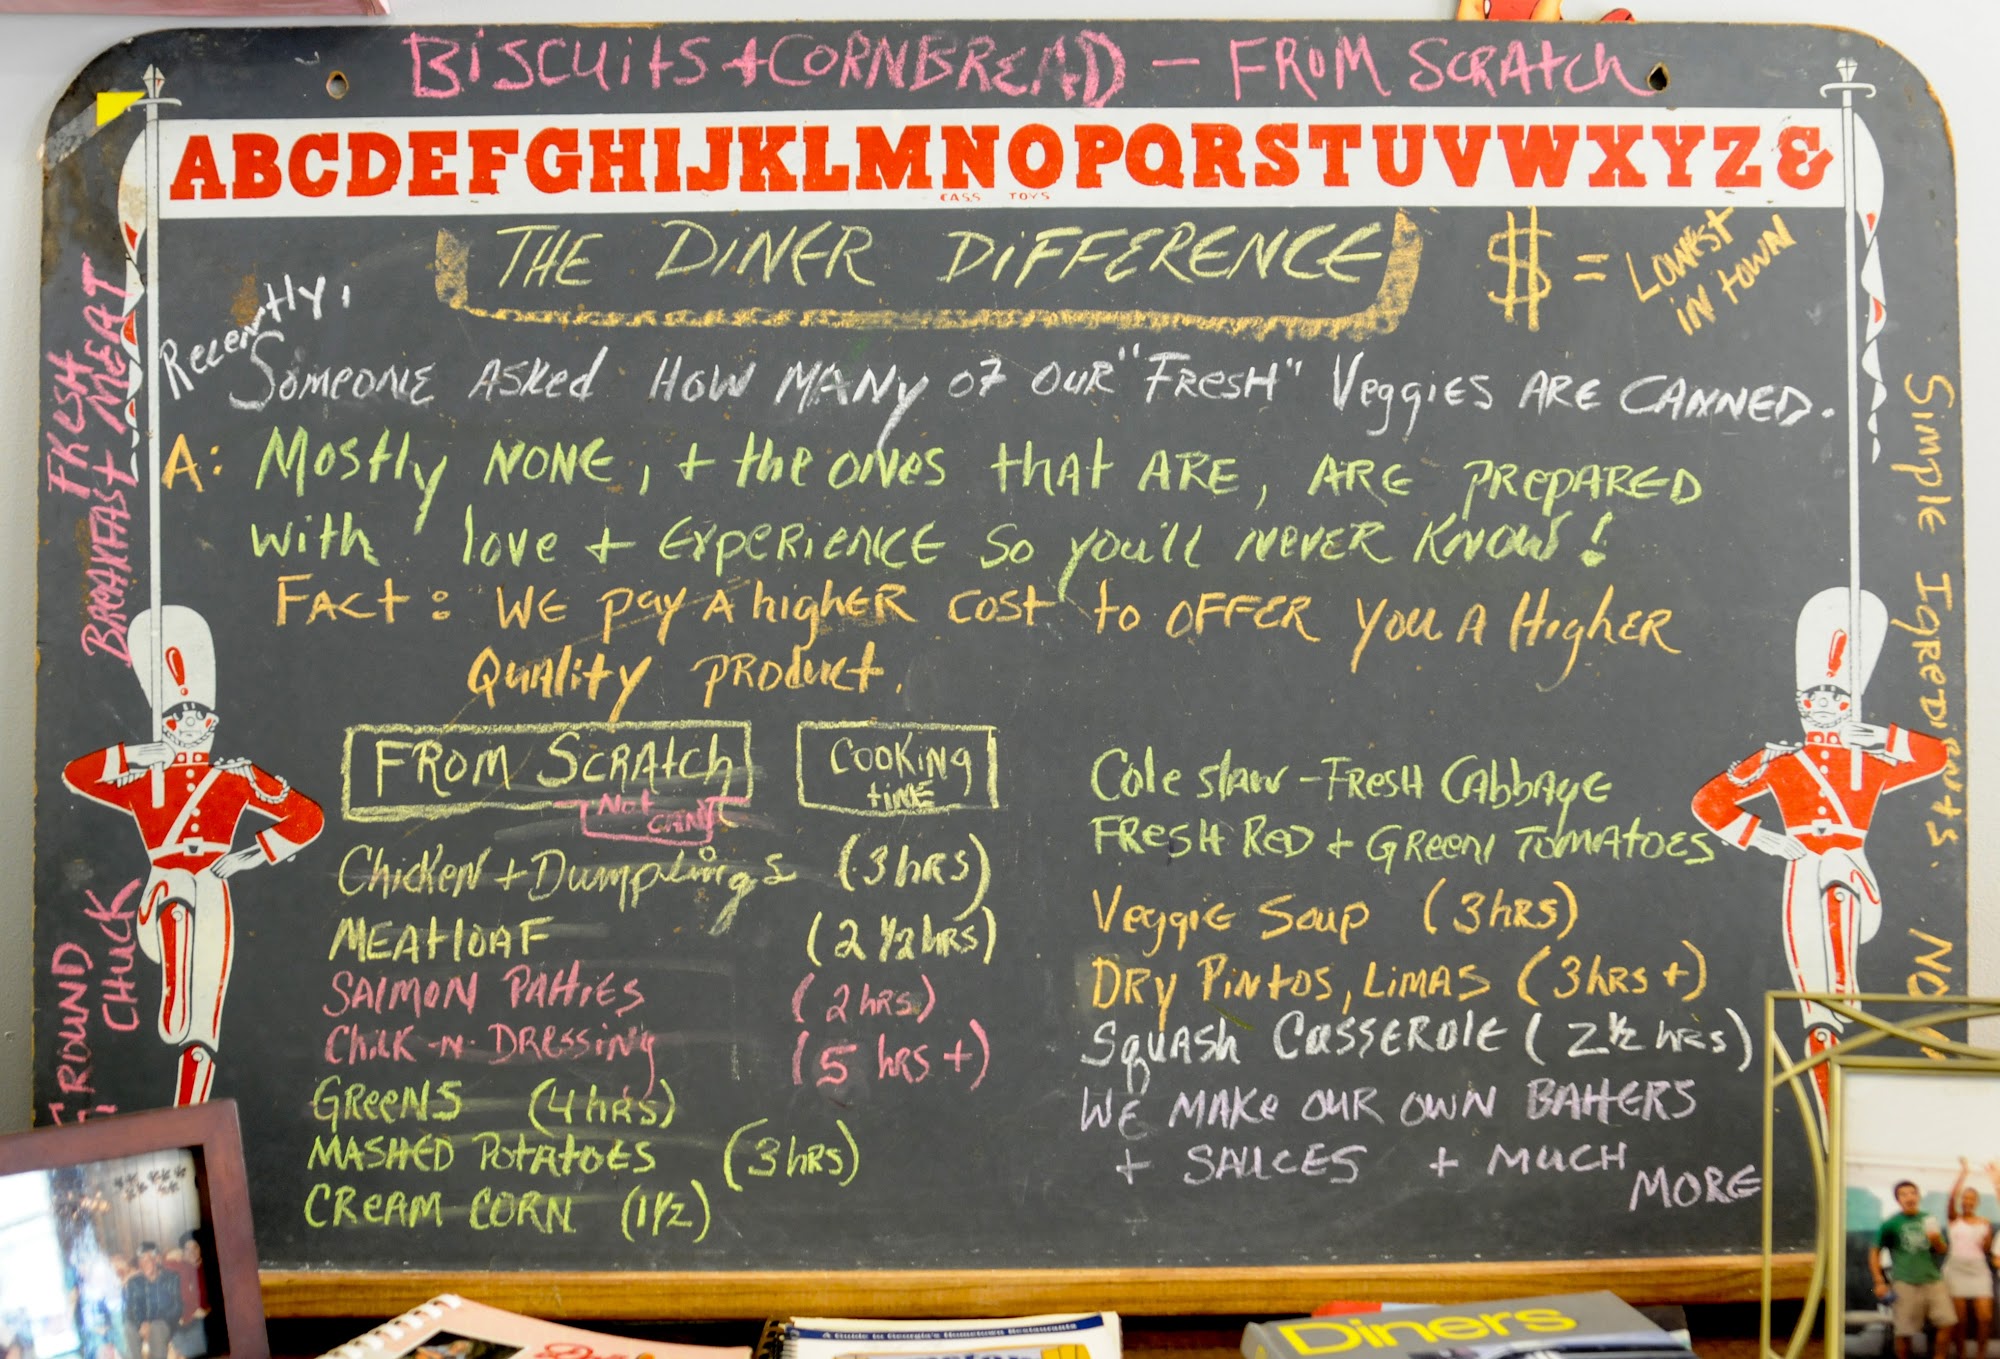 BiscuitS + CORNBREAD — FROM SCRAtch
ABCDEFGHIJKLMNOPQRSTUVWXYZ&
CASS TOYS
THE DINER DiFFERENCE
$ = LOWEST
IN town
Recently,
SomeonE ASKed HOW MANy OF OUR "FResH" Veggies ARE CANNED.
A: Mostly NONE, + the ONEs that ARE, ARE PREPARED
With love + EXPERIENCE So you'll NEVER KNOW!
FAct: WE pay A higHER COST to OFFER YOU A HigHER
QuAlity PRoduct.
FROM SCRAtch
Not CAN
COOKiNg
tiME
ChickEN + DumpliNgS (3 hRS)
MEAtloAF (2 1/2 hRS)
SAlMON PAttiES (2 hRS)
Chick-N-DRESSiNg (5 hRS +)
GReeNS (4 hRS)
MASHED POTATOES (3 hRS)
CREAM CORN (1 1/2)
Cole slaw - FRESH CAbbAgE
FRESH RED + GReeN TOMATOES
VeggiE Soup (3 hRS)
DRy PiNtOS, LiMAS (3 hRS +)
SquASH CASSEROlE (2 1/2 hRS)
WE MAKe OUR OWN BAttERS
+ SAUCES + MUCH
MORE
FRESH
BREAKFAST MEAT
GROUND
CHUCK
SimplE IgREDiENtS.
A Guide to Georgia's Hometown Restaurants
Diners